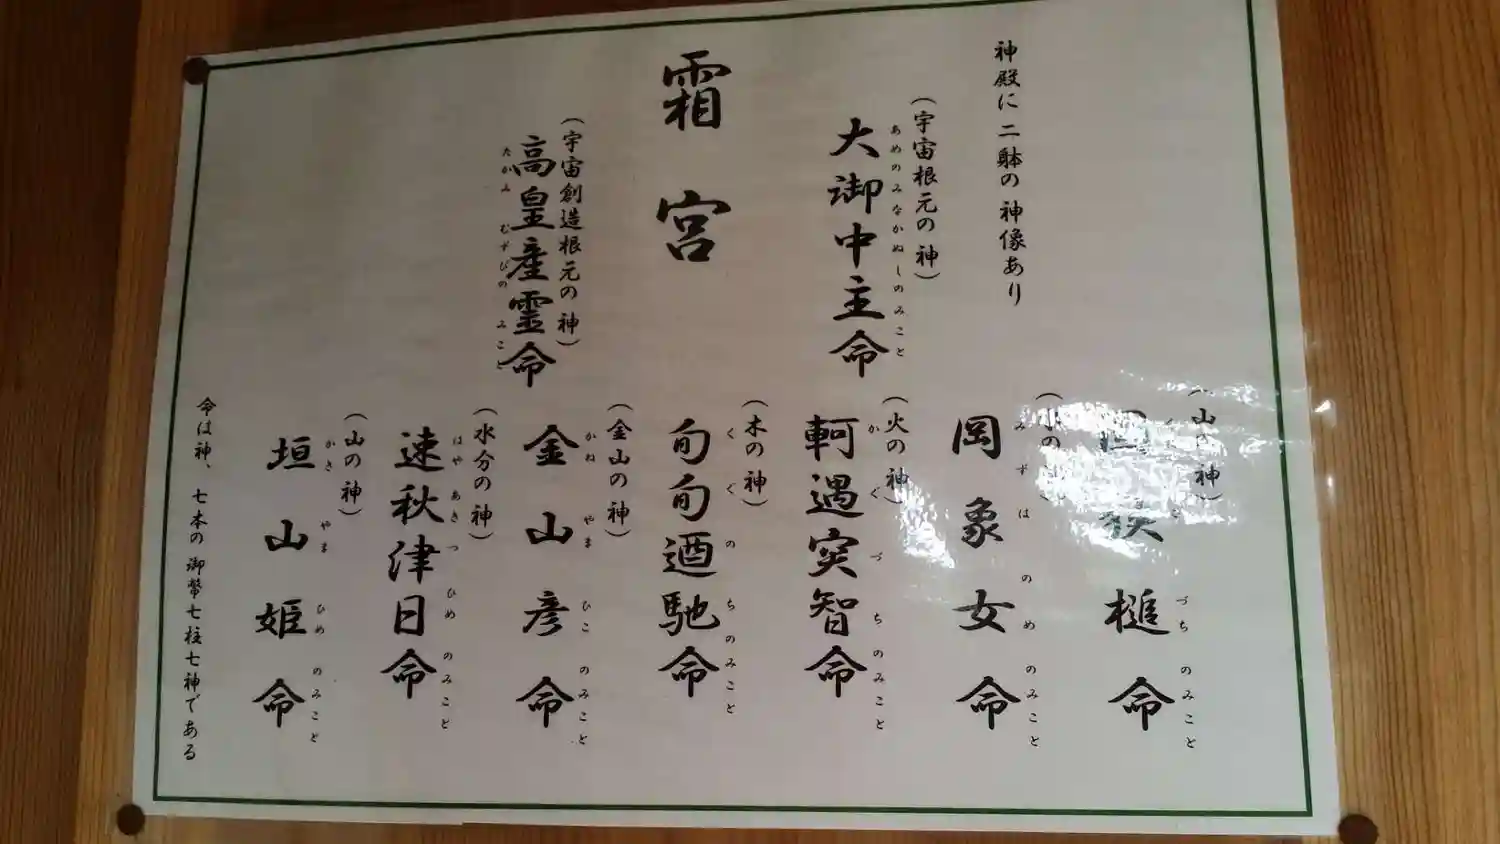 神殿に二躰の神像あり
(宇宙根元の神)
大御中主命
あめのみなかぬしのみこと
霜宮
(宇宙創造根元の神)
高皇産霊命
たかみ むすびの みこと
(山の神)
槌命
づち のみこと
の
岡象女命
みずはのめのみこと
(火の神)
軻遇突智命
かぐづちのみこと
(木の神)
句句廼馳命
くぐのちのみこと
(金山の神)
金山彦命
かねやまひこのみこと
(水分の神)
速秋津日命
はやあきつひめのみこと
(山の神)
垣山姫命
かきやまひめのみこと
命は神、七本の御幣七柱七神である